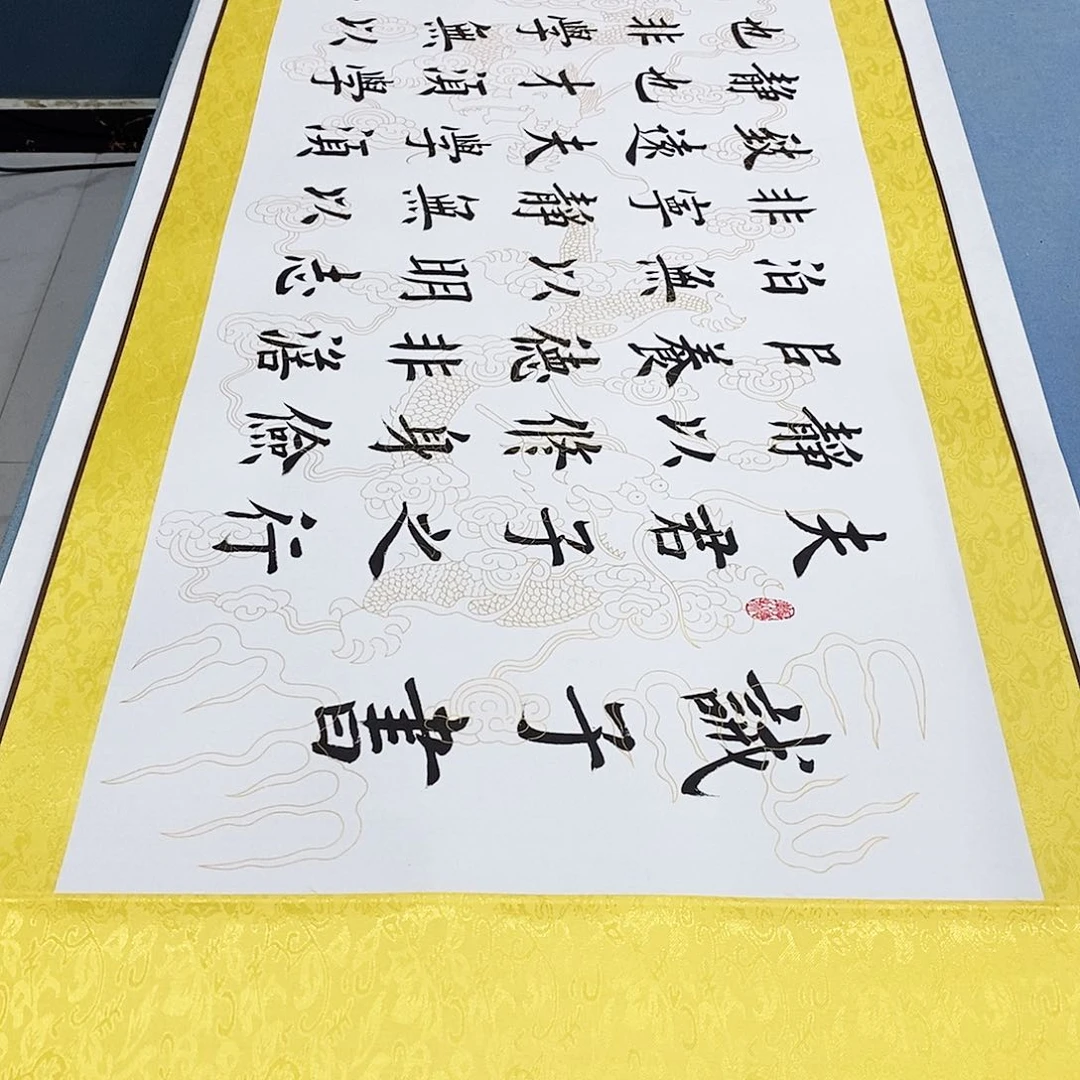 誡子書
夫君子之行
靜以修身儉
㠯養德非澹
泊無以明志
非寧靜無以
致遠夫學須
靜也才須學
也非學無以